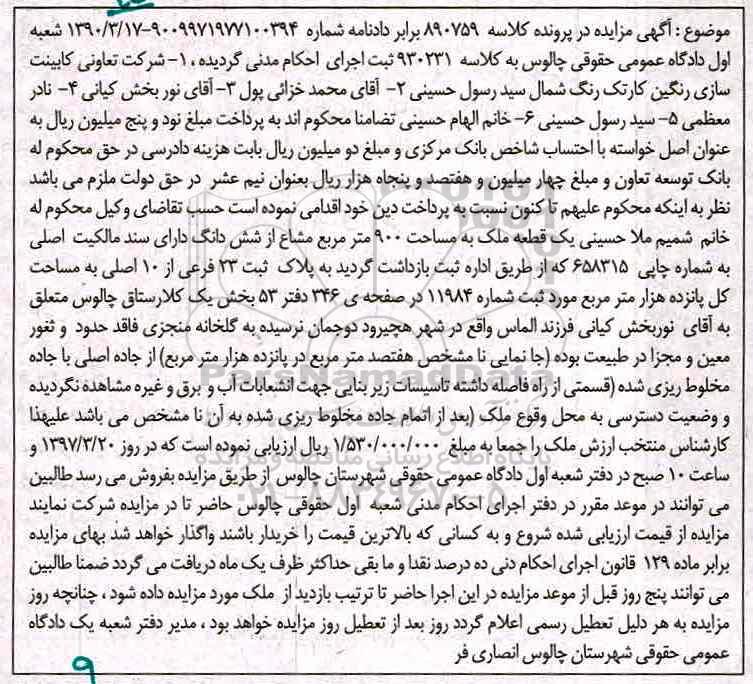 موضوع : آگهی مزایده در پرونده کلاسه ۸۹۰۷۵۹ برابر دادنامه شماره ۹۰۰۹۹۷۱۹۷۷۱۰۰۳۹۴-۱۳۹۰/۳/۱۷ شعبه
اول دادگاه عمومی حقوقی چالوس به کلاسه ۹۳۰۲۳۱ ثبت اجرای احکام مدنی گردیده ، ۱- شرکت تعاونی کابینت
سازی رنگین کارتک رنگ شمال سید رسول حسینی ۲- آقای محمد خزائی پول ۳- آقای نور بخش کیانی ۴- نادر
معظمی ۵- سید رسول حسینی ۶- خانم الهام حسینی تضامنا محکوم اند به پرداخت مبلغ نود و پنج میلیون ریال به
عنوان اصل خواسته با احتساب شاخص بانک مرکزی و مبلغ دو میلیون ریال بابت هزینه دادرسی در حق محکوم له
بانک توسعه تعاون و مبلغ چهار میلیون و هفتصد و پنجاه هزار ریال بعنوان نیم عشر در حق دولت ملزم می باشد
نظر به اینکه محکوم علیهم تا کنون نسبت به پرداخت دین خود اقدامی نموده است حسب تقاضای وکیل محکوم له
خانم شمیم ملا حسینی یک قطعه ملک به مساحت ۹۰۰ متر مربع مشاع از شش دانگ دارای سند مالکیت اصلی
به شماره چاپی ۶۵۸۳۱۵ که از طریق اداره ثبت بازداشت گردید به پلاک ثبت ۲۳ فرعی از ۱۰ اصلی به مساحت
کل پانزده هزار متر مربع مورد ثبت شماره ۱۱۹۸۴ در صفحه ی ۳۴۶ دفتر ۵۳ بخش یک کلارستاق چالوس متعلق
به آقای نوربخش کیانی فرزند الماس واقع در شهر هچیرود دوجمان نرسیده به گلخانه منجزی فاقد حدود و ثغور
معین و مجزا در طبیعت بوده (جا نمایی نا مشخص هفتصد متر مربع در پانزده هزار متر مربع) از جاده اصلی با جاده
مخلوط ریزی شده (قسمتی از راه فاصله داشته تاسیسات زیر بنایی جهت انشعابات آب و برق و غیره مشاهده نگردیده
و وضعیت دسترسی به محل وقوع ملک (بعد از اتمام جاده مخلوط ریزی شده به آن نا مشخص می باشد علیهذا
کارشناس منتخب ارزش ملک را جمعا به مبلغ ۱/۵۳۰/۰۰۰/۰۰۰ ریال ارزیابی نموده است که در روز ۱۳۹۷/۳/۲۰ و
ساعت ۱۰ صبح در دفتر شعبه اول دادگاه عمومی حقوقی شهرستان چالوس از طریق مزایده بفروش می رسد طالبین
می توانند در موعد مقرر در دفتر اجرای احکام مدنی شعبه اول حقوقی چالوس حاضر تا در مزایده شرکت نمایند
مزایده از قیمت ارزیابی شده شروع و به کسانی که بالاترین قیمت را خریدار باشند واگذار خواهد شد بهای مزایده
برابر ماده ۱۲۹ قانون اجرای احکام دنی ده درصد نقدا و ما بقی حداکثر ظرف یک ماه دریافت می گردد ضمنا طالبین
می توانند پنج روز قبل از موعد مزایده در این اجرا حاضر تا ترتیب بازدید از ملک مورد مزایده داده شود ، چنانچه روز
مزایده به هر دلیل تعطیل رسمی اعلام گردد روز بعد از تعطیل روز مزایده خواهد بود ، مدیر دفتر شعبه یک دادگاه
عمومی حقوقی شهرستان چالوس انصاری فر
۹
ParsNamadData
پایگاه اطلاع رسانی مناقصه و مزایده
۰۲۱-۸۸۳۴۹۶۷۰-۵